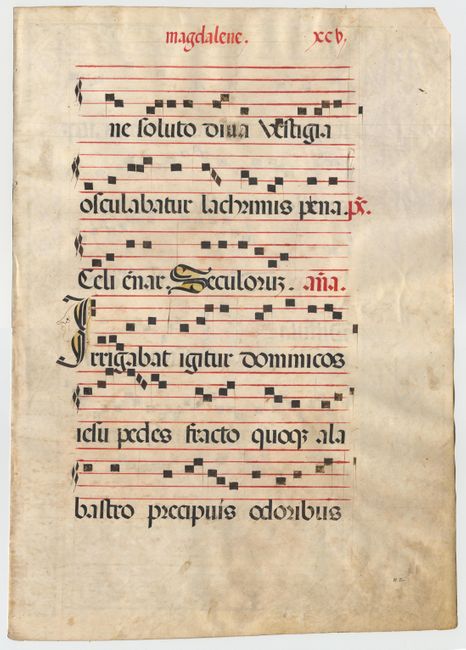 magdalene. xcv.
ne soluto diva vestigia
osculabatur lachrimis plena. ps.
Celi enar. Seculorum. aña.
Irrigabat igitur dominicos
iesu pedes fracto quoqz ala
bastro precipuis odoribus